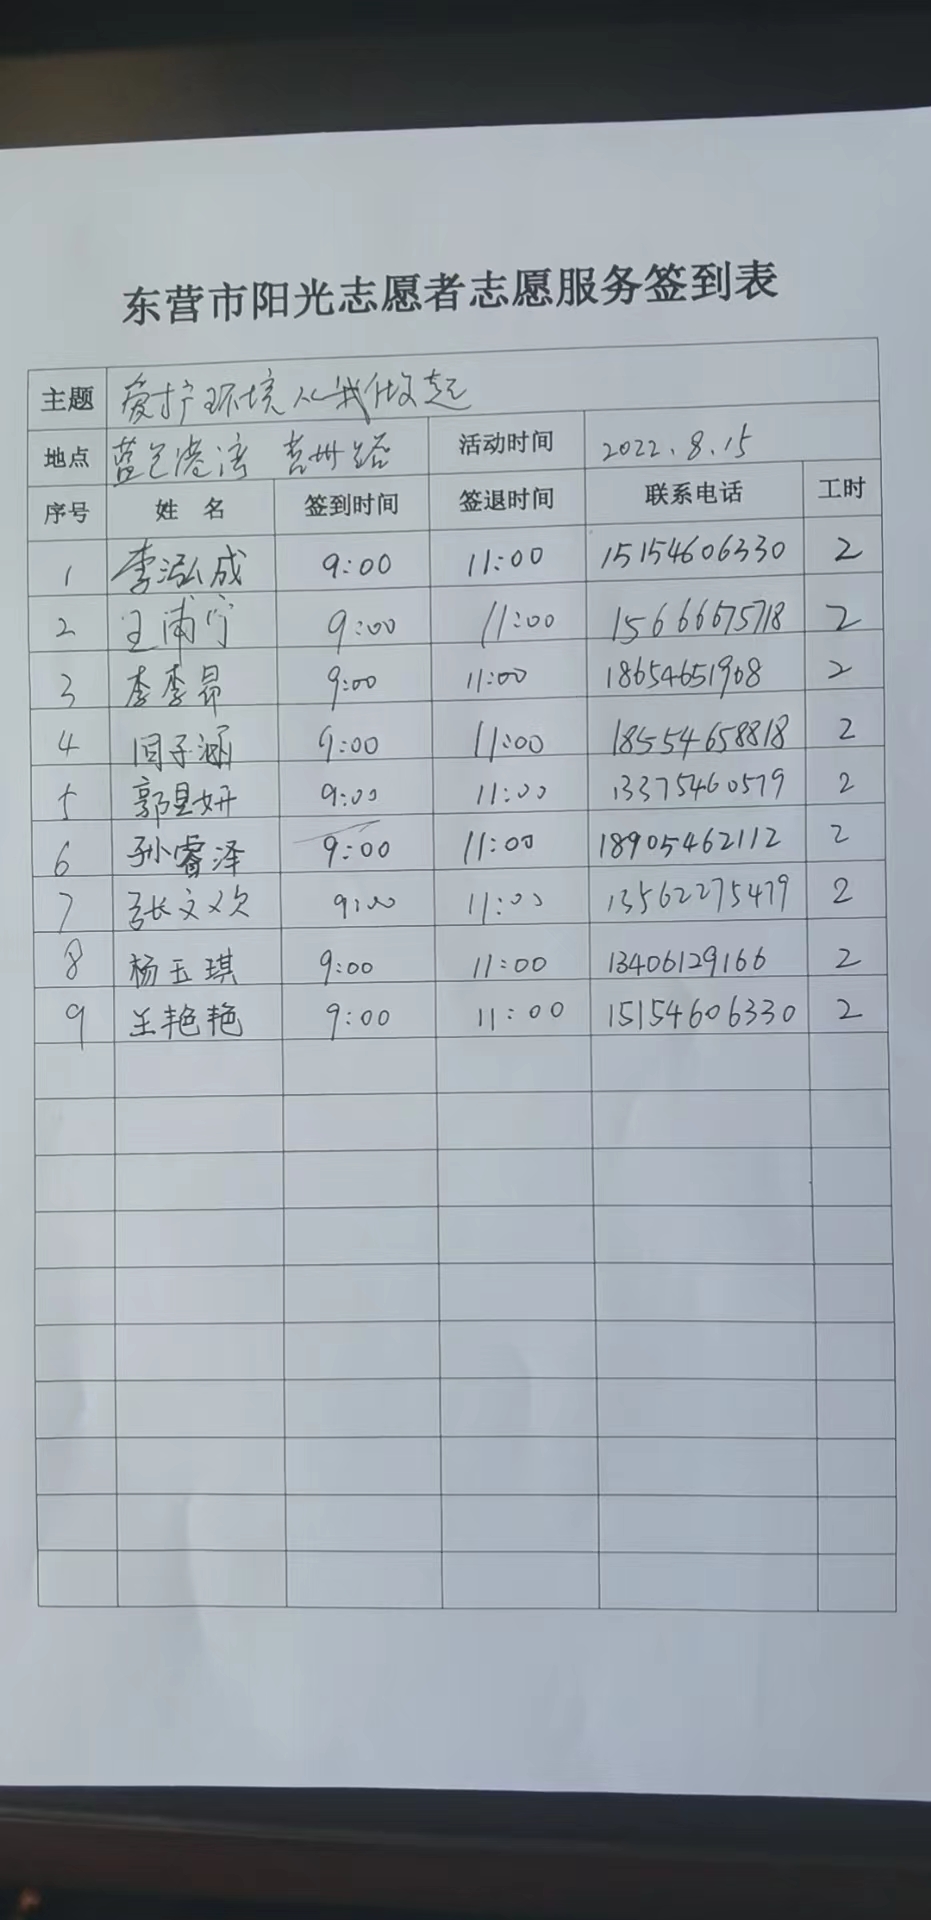 东营市阳光志愿者志愿服务签到表
主题 爱护环境从我做起
地点 蓝色港湾 莒州路 活动时间 2022.8.15
序号 姓名 签到时间 签退时间 联系电话 工时
1 李泓成 9:00 11:00 15154606330 2
2 王甫宁 9:00 11:00 15666675718 2
3 李李昂 9:00 11:00 18654651908 2
4 闫子涵 9:00 11:00 18554658818 2
5 郭昱妍 9:00 11:00 13375460579 2
6 孙睿泽 9:00 11:00 18905462112 2
7 张文 9:00 11:00 13562275479 2
8 杨玉琪 9:00 11:00 13406129166 2
9 王艳艳 9:00 11:00 15154606330 2